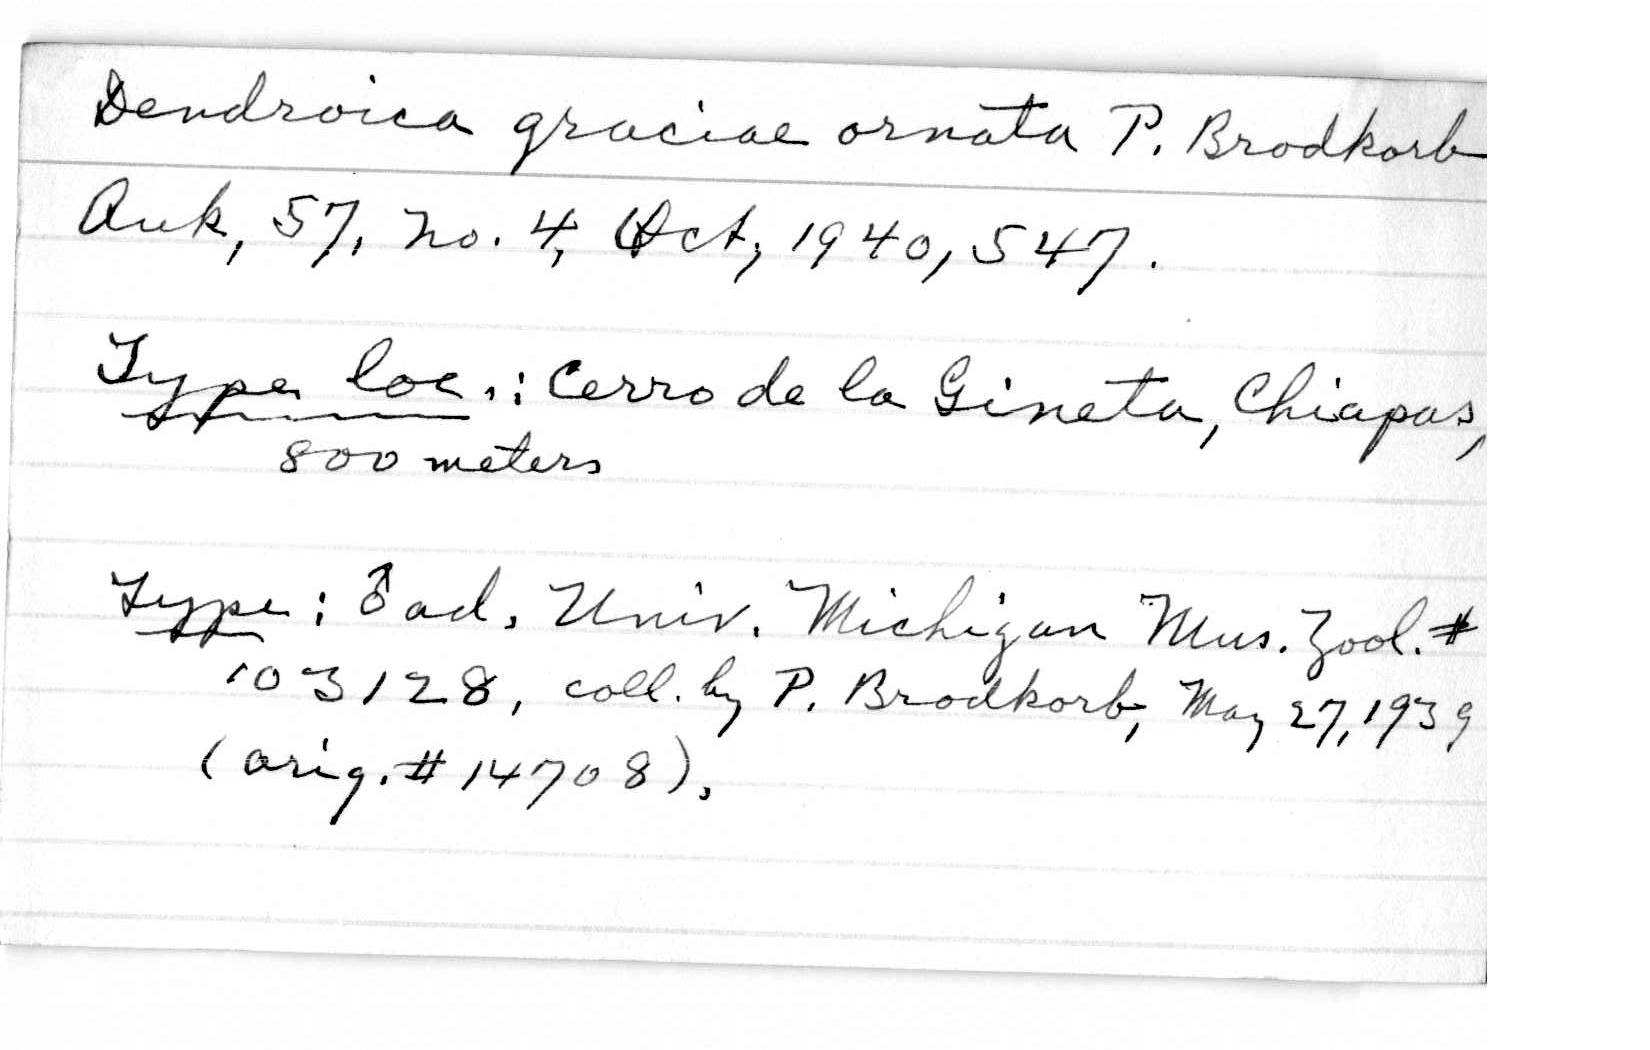 Dendroica graciae ornata P. Brodkorb
Auk, 57, no. 4, Oct, 1940, 547.
Type loc.: Cerro de la Gineta, Chiapas,
800 meters
Type: ♂ ad. Univ. Michigan Mus. Zool. #
103128, coll. by P. Brodkorb, May 27, 1939
(orig. # 14708).